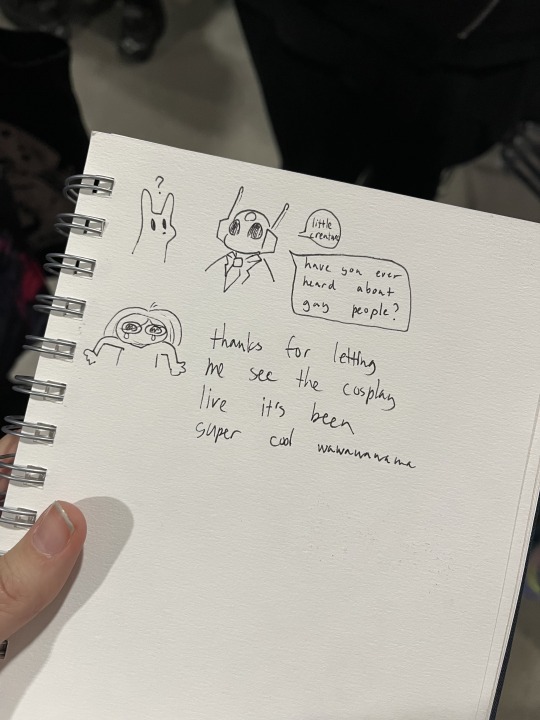 ?
little
creature
have you ever
heard about
gay people?
thanks for letting
me see the cosplay
live it's been
super cool wawawawawa